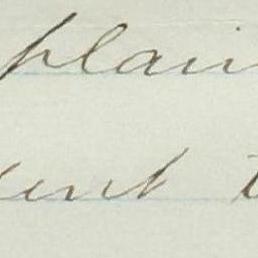 plain
ent t